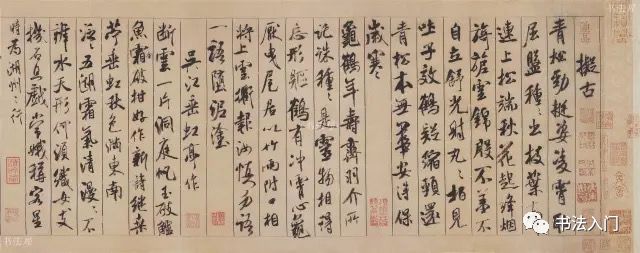 擬古
青松勁挺姿凌霄恥
屈盤種々出枝葉牽
連上松端秋花起絳烟
旖旎雲錦殷不羞不
自立舒光射丸々柏見
吐子效鶴疑縮頸還
青松本無華安得保
歲寒
龜鶴年壽齊羽介所
託殊種々是靈物相得
忘形軀鶴有沖霄心龜
厭曳尾居以竹兩附口相
將上雲衢報汝慎勿語
一語墮泥塗
吳江垂虹亭作
斷雲一片洞庭帆玉破鱸
魚霜破柑好作新詩繼桑
苧垂虹秋色滿東南
泛々五湖霜氣清漫々不
辨水天形何須織女支
機石且戲常娥稱客星
時為湖州之行
书法入门